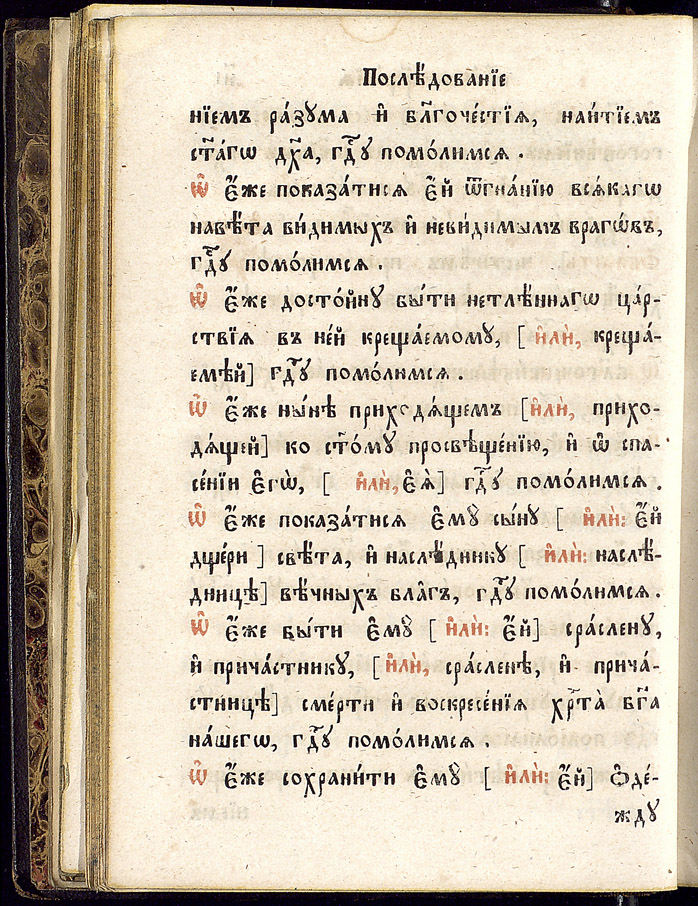 Послѣ́дованїе
нїемъ ра́зꙋма и҆ бл҃гоче́стїѧ, наи́тїемъ
ст҃а́гѡ дх҃а, гдⷭ҇ꙋ помо́лимсѧ.
Ѡ҆ є҆́же показа́тисѧ є҆́й ѿгна́нїю всѧ́кагѡ
навѣ́та ви́димыхъ и҆ неви́димымъ врагѡ́въ,
гдⷭ҇ꙋ помо́лимсѧ
Ѡ҆ є҆́же досто́йнꙋ бы́ти нетлѣ́ннагѡ ца́р-
ствїѧ въ не́й креща́емомꙋ, [ и҆лѝ, креща́-
емѣй] гдⷭ҇ꙋ помо́лимсѧ.
Ѡ҆ є҆́же ны́нѣ приходѧ́щемъ [и҆лѝ, прихо-
дѧ́щей] ко ст҃о́мꙋ просвѣще́нїю, и҆ ѡ҆ спа-
се́нїи є҆гѡ̀, [ и҆лѝ, є҆ѧ̀] гдⷭ҇ꙋ помо́лимсѧ.
Ѡ҆ є҆́же показа́тисѧ є҆мꙋ̀ сы́нꙋ [ и҆лѝ: є҆́й
дще́ри ] свѣ́та, и҆ наслѣ́дникꙋ [ и҆лѝ: наслѣ́-
дницѣ] вѣ́чныхъ бла҃гъ, гдⷭ҇ꙋ помо́лимсѧ.
Ѡ҆ є҆́же бы́ти є҆мꙋ̀ [ и҆лѝ: є҆́й] сра́сленꙋ,
и҆ прича́стникꙋ, [и҆лѝ, сра́сленѣ, и҆ прича́-
стницѣ] сме́рти и҆ воскресе́нїѧ хрⷭ҇та̀ бг҃а
на́шегѡ, гдⷭ҇ꙋ помо́лимсѧ.
Ѡ҆ є҆́же сохрани́ти є҆мꙋ̀ [ и҆лѝ: є҆́й] ѻ҆де́-
ждꙋ